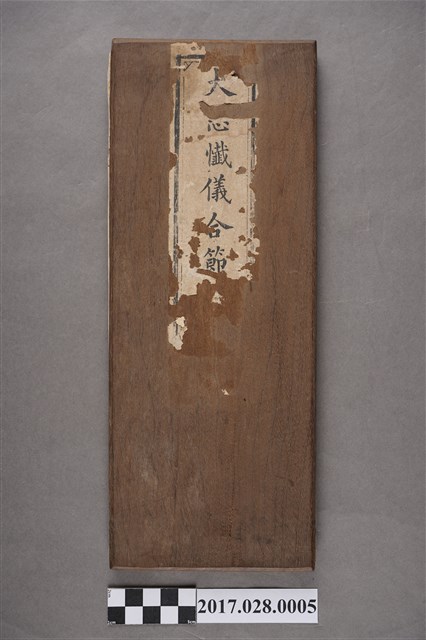 大悲懺儀合節
2017.028.0005